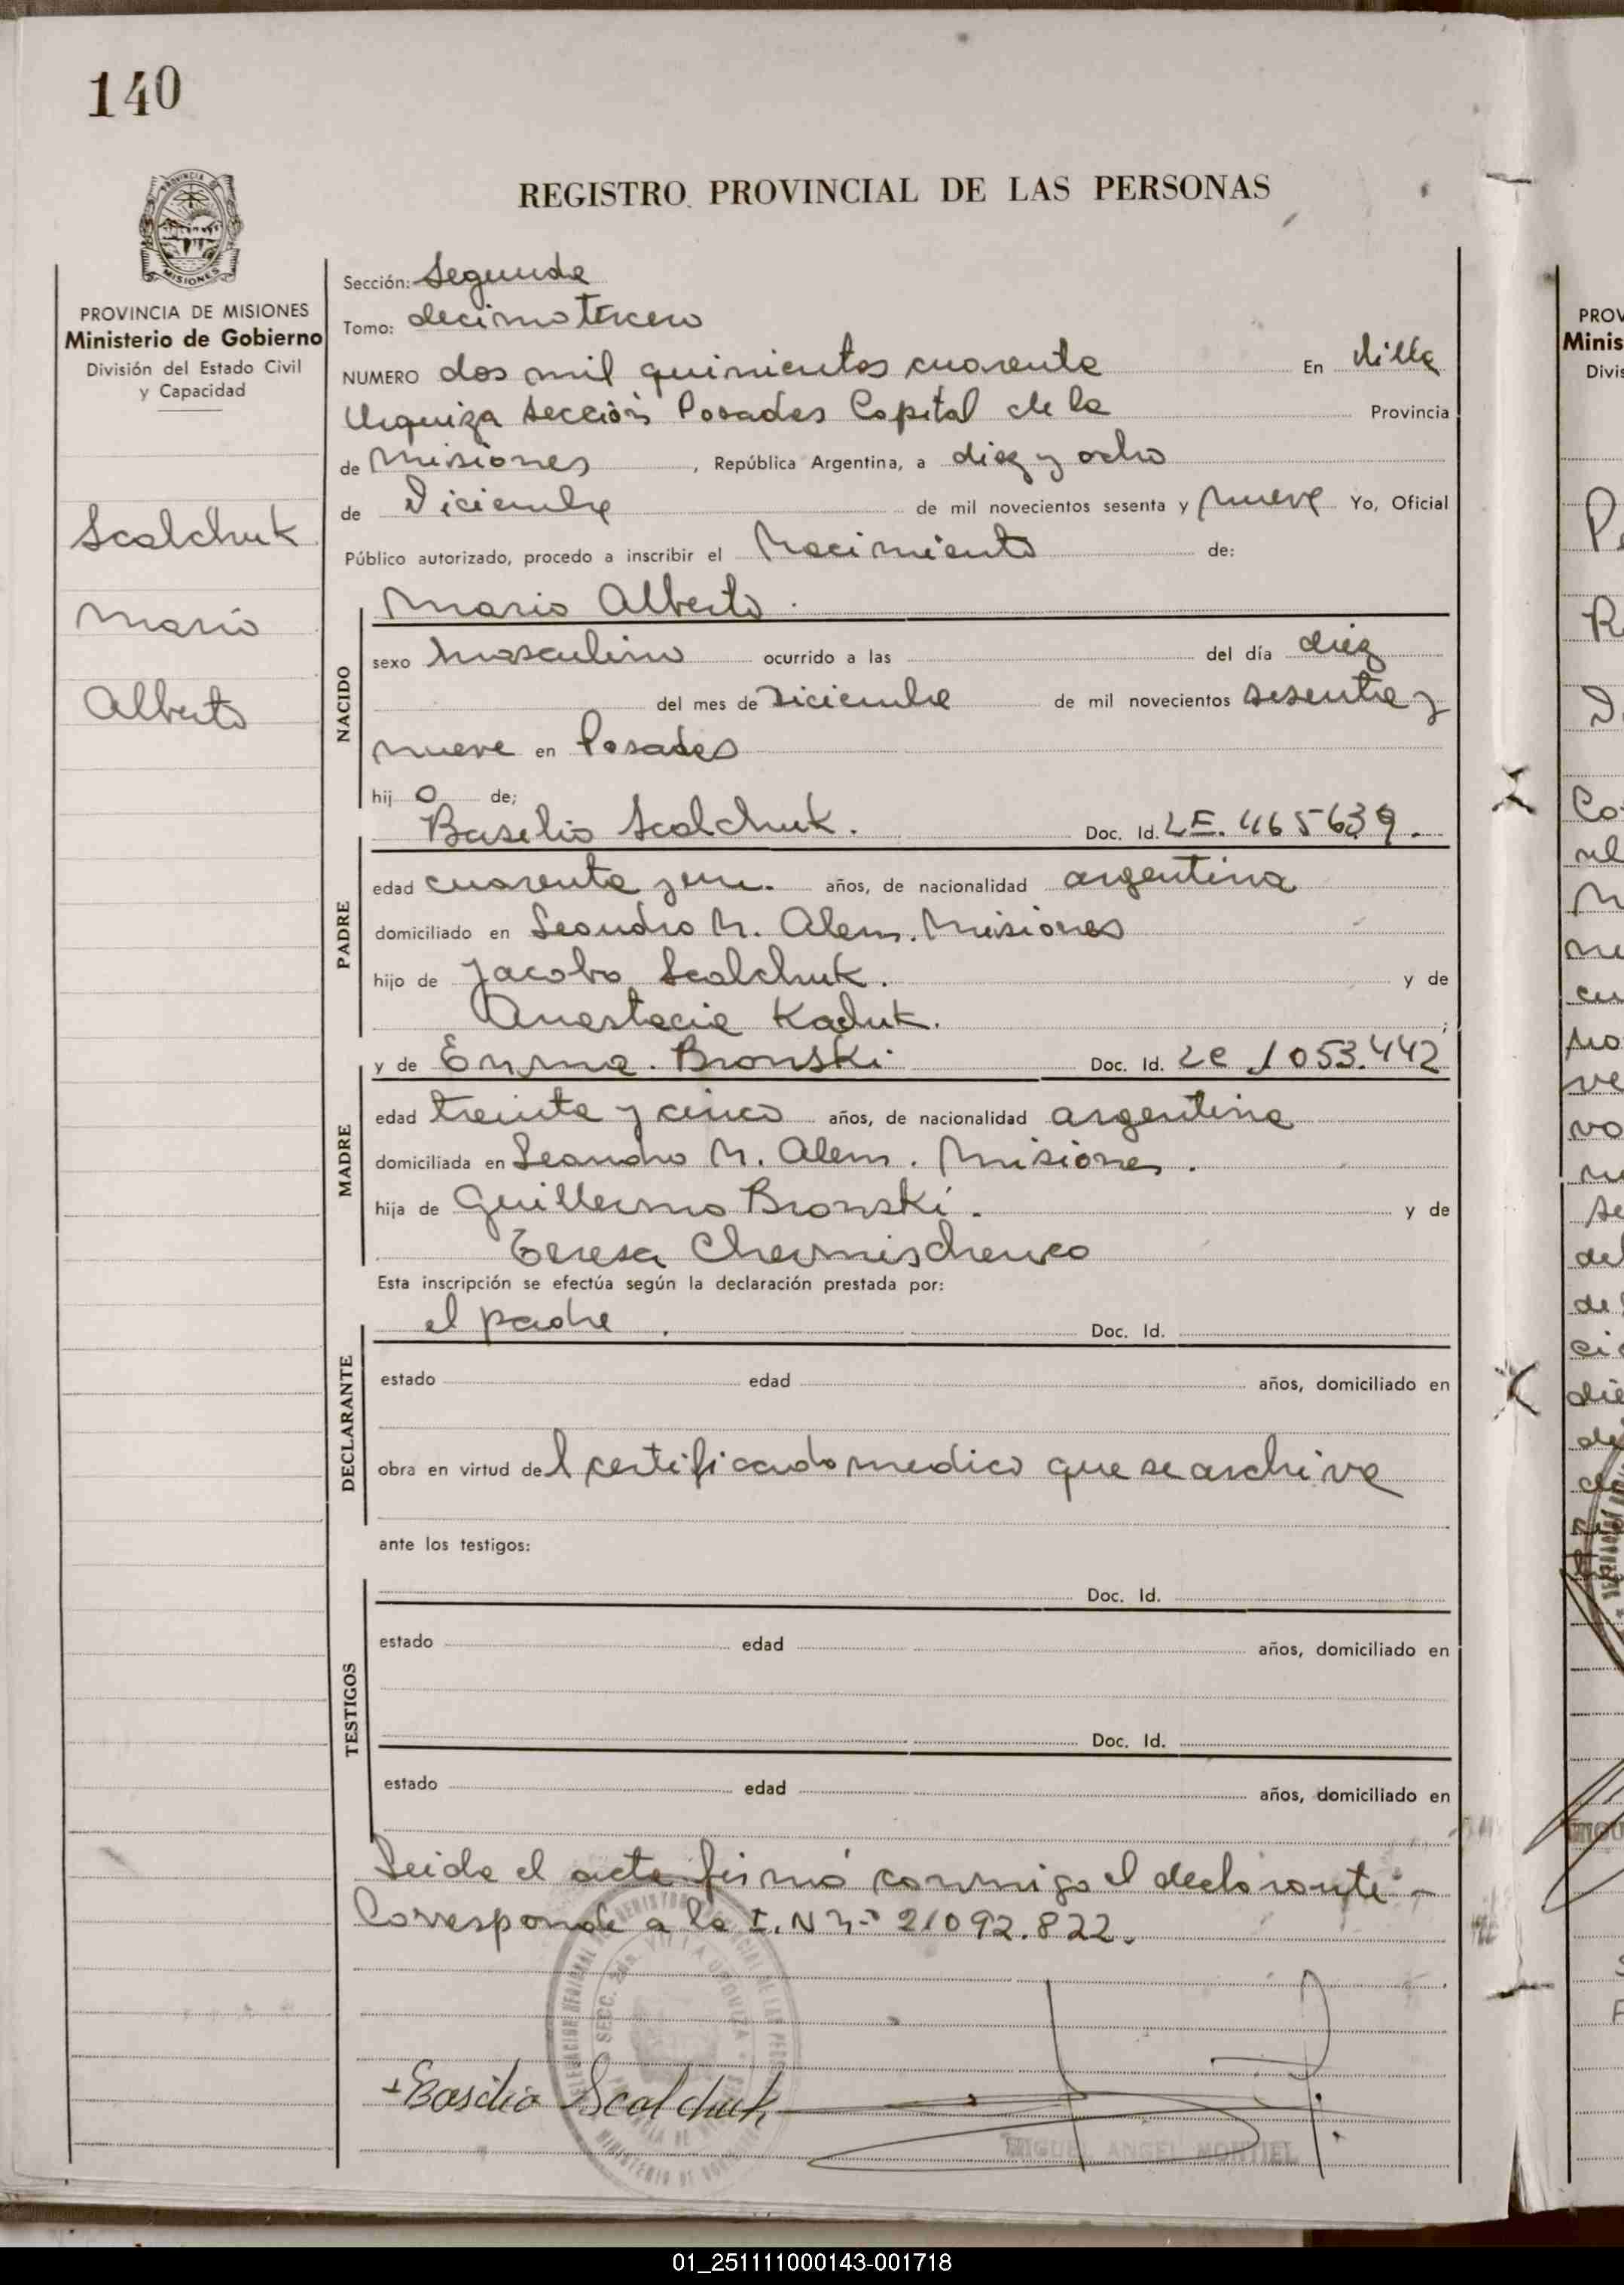 140
REGISTRO PROVINCIAL DE LAS PERSONAS
MISIONES
PROVINCIA DE MISIONES
Ministerio de Gobierno
División del Estado Civil
y Capacidad
Scalchuk
Mario
Alberto
Sección: Segunda
Tomo: decimo tercero
NUMERO dos mil quinientos cuarenta En Villa
Urquiza Sección Posadas Capital de la Provincia
de Misiones, República Argentina, a diez y ocho
de Diciembre de mil novecientos sesenta y nueve Yo, Oficial
Público autorizado, procedo a inscribir el Nacimiento de:
NACIDO
Mario Alberto.
sexo masculino ocurrido a las del día diez
del mes de Diciembre de mil novecientos sesenta y
nueve en Posadas
hij o de;
Basilio Scalchuk. Doc. Id. LE. 465639.
PADRE
edad cuarenta y un. años, de nacionalidad argentina
domiciliado en Leandro N. Alem. Misiones
hijo de Jacobo Scalchuk. y de
Anastacia Kaduk. ;
y de Emma. Bronski Doc. Id. LC 1053.442
MADRE
edad treinta y cinco años, de nacionalidad argentina
domiciliada en Leandro N. Alem. Misiones.
hija de Guillermo Bronski. y de
Teresa Chernischenco
Esta inscripción se efectúa según la declaración prestada por:
el padre. Doc. Id.
DECLARANTE
estado edad años, domiciliado en
obra en virtud del certificado medico que se archiva
ante los testigos:
TESTIGOS
Doc. Id.
estado edad años, domiciliado en
Doc. Id.
estado edad años, domiciliado en
Leida el acta firmó conmigo el declarante -
Corresponde a la I. N M-° 21092.822.
Basilio Scalchuk
MIGUEL ANGEL MONTIEL
01_251111000143-001718